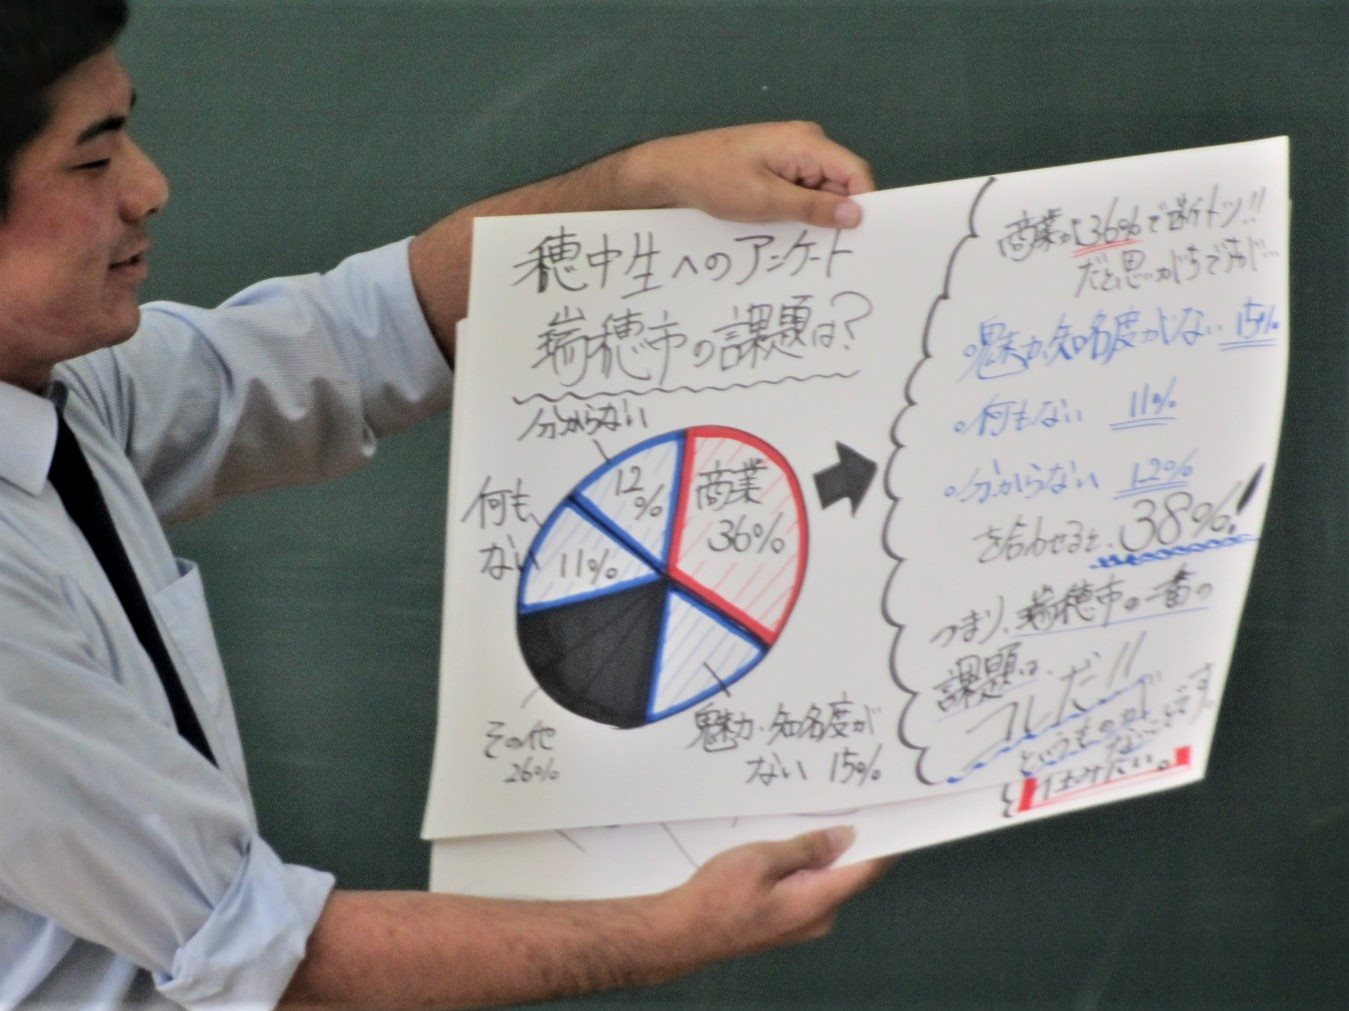 穂中生へのアンケート
瑞穂市の課題は?
分からない
12%
何も
ない
11%
商業
36%
その他
26%
魅力・知名度が
ない 15%
商業が36%でダントツ!!
だと思いがちですが…
○魅力、知名度がない 15%
○何もない 11%
○分からない 12%
を合わせると、38%!
つまり、瑞穂市の一番の
課題は、
コレだ!!
というものが
ないことです。